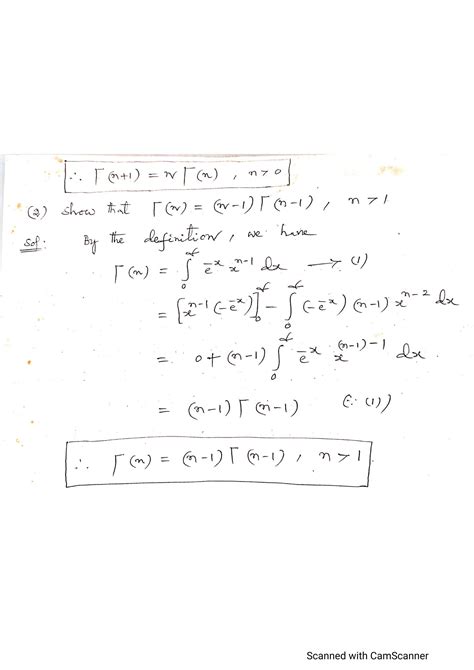 ∴ Γ(n+1) = n Γ(n) , n > 0
(2) show that Γ(n) = (n-1) Γ(n-1) , n > 1
Sol: By the definition, we have
Γ(n) = ∫₀^∞ e^{-x} x^{n-1} dx → (1)
= [x^{n-1} (-e^{-x})]₀^∞ - ∫₀^∞ (-e^{-x}) (n-1) x^{n-2} dx
= 0 + (n-1) ∫₀^∞ e^{-x} x^{(n-1)-1} dx.
= (n-1) Γ(n-1) (∵ (1))
∴ Γ(n) = (n-1) Γ(n-1) , n > 1
Scanned with CamScanner